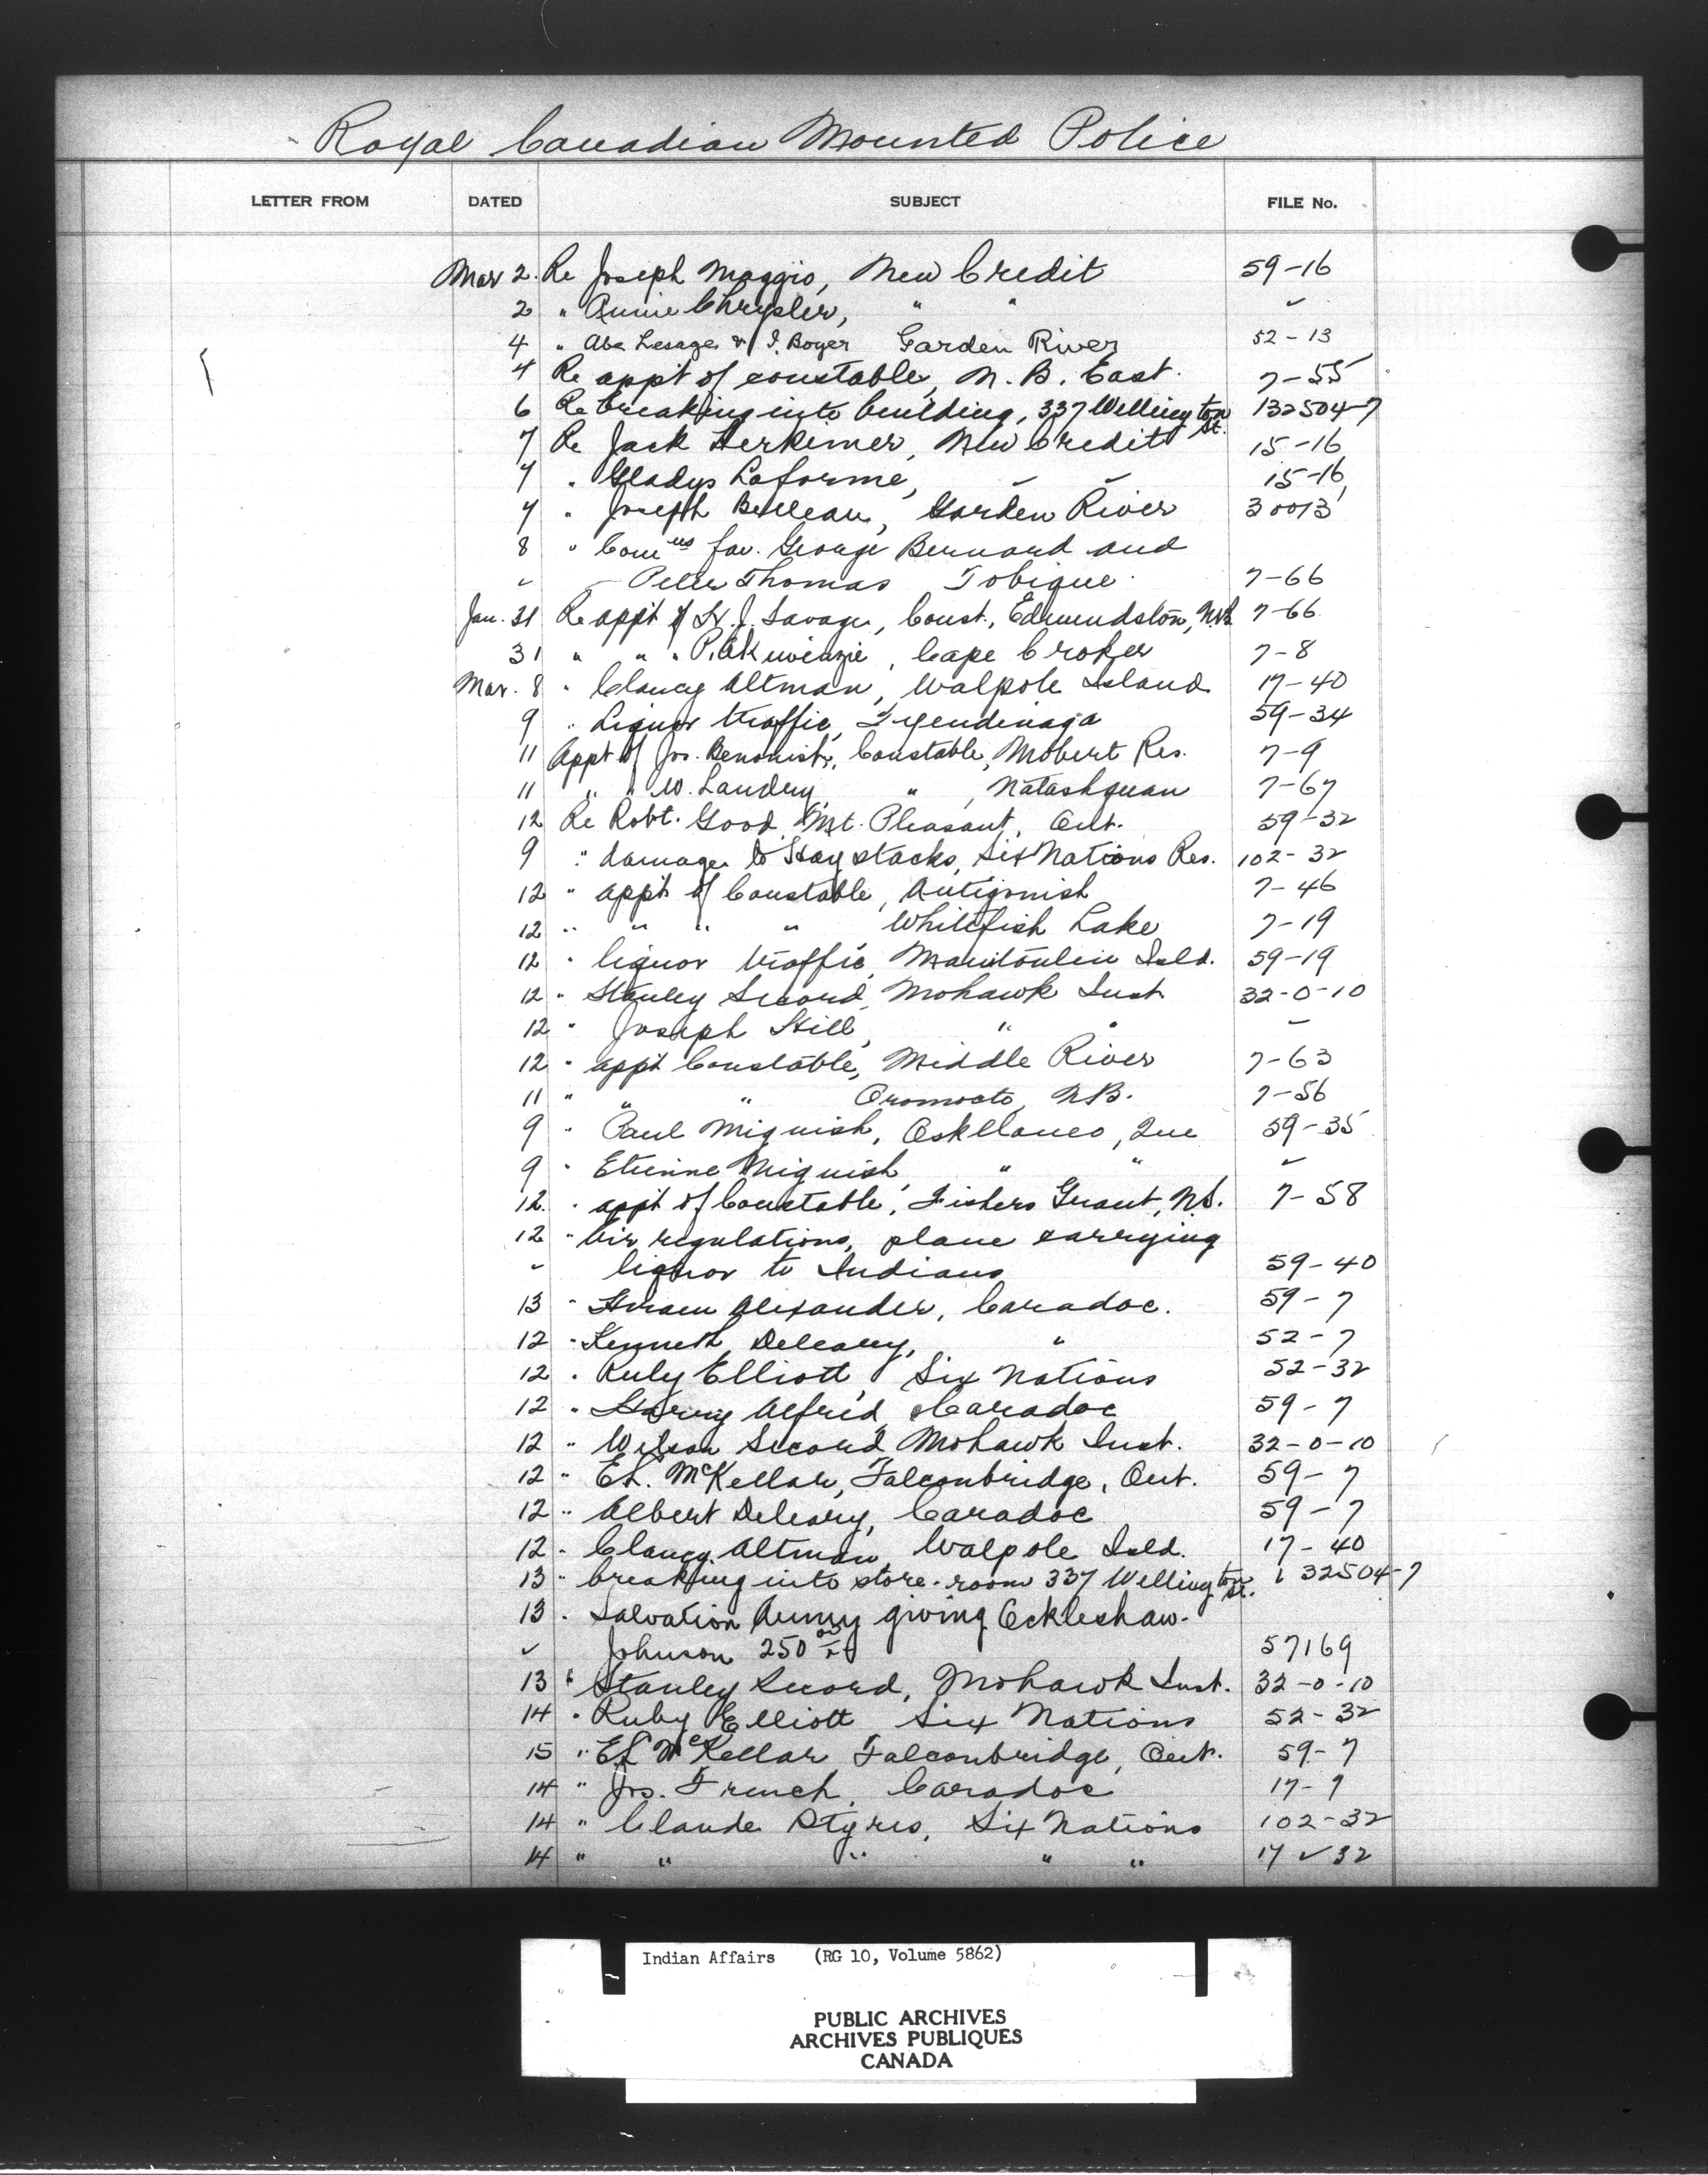 Royal Canadian Mounted Police
LETTER FROM DATED SUBJECT FILE No.
Mar 2. Re Joseph Maggio, New Credit 59-16
2 " Annie Chrysler, " " "
4 " Abe Lesage & J. Boyer Garden River 52-13
4 Re appt of constable, N.B. East. 7-55
6 Re breaking into building, 337 Wellington St. 132504-7
7 Re Jack Herkimer, New Credit 15-16
7 " Gladys Laforme, " " 15-16
7 " Joseph Belleau, Garden River 30013
8 " Comns fav. George Bernard and
" Peter Thomas Tobique. 7-66
Jan. 31 Re appt of H.J. Savage, Const., Edmundston, N.B. 7-66
31 " " " Akiwenzie, Cape Croker 7-8
Mar. 8 " Clancy Altman, Walpole Island 17-40
9 " Liquor traffic, Tyendinaga 59-34
11 Appt of Jos. Benonist, Constable, Mobert Res. 7-9
11 " " W. Landry, " , Natashquan 7-67
12 Re Robt. Good, Mt. Pleasant, Ont. 59-32
9 " damage to Hay stacks, Six Nations Res. 102-32
12 " appt of Constable, Antigonish 7-46
12 " " " " Whitefish Lake 7-19
12 " liquor traffic, Manitoulin Isld. 59-19
12 " Stanley Secord, Mohawk Inst. 32-0-10
12 " Joseph Hill, " " "
12 " appt Constable, Middle River 7-63
11 " " " Oromocto, N.B. 7-56
9 " Paul Miquish, Oskelaneo, Que 59-35
9 " Etienne Miquish, " " "
12. " appt of Constable, Fishers Grant, N.S. 7-58
12 " Air regulations, plane carrying
" liquor to Indians 59-40
13 " Hiram Alexander, Caradoc. 59-7
12 " Kenneth Deleary, " 52-7
12 " Ruby Elliott, Six Nations 52-32
12 " Harvey Alfred, Caradoc 59-7
12 " Wilson Secord Mohawk Inst. 32-0-10
12 " E.L. McKellar, Falconbridge, Ont. 59-7
12 " Albert Deleary, Caradoc 59-7
12 " Clancy Altman, Walpole Isld. 17-40
13 " breaking into store-room 337 Wellington St. 132504-7
13 " Salvation Army giving Ockleshaw-
" Johnson 250 00/xx 57169
13 " Stanley Secord, Mohawk Inst. 32-0-10
14 " Ruby Elliott Six Nations 52-32
15 " E.L. McKellar Falconbridge, Ont. 59-7
14 " Jos. French, Caradoc 17-7
14 " Claude Styres, Six Nations 102-32
14 " " " " " 17-32
Indian Affairs (RG 10, Volume 5862)
PUBLIC ARCHIVES
ARCHIVES PUBLIQUES
CANADA